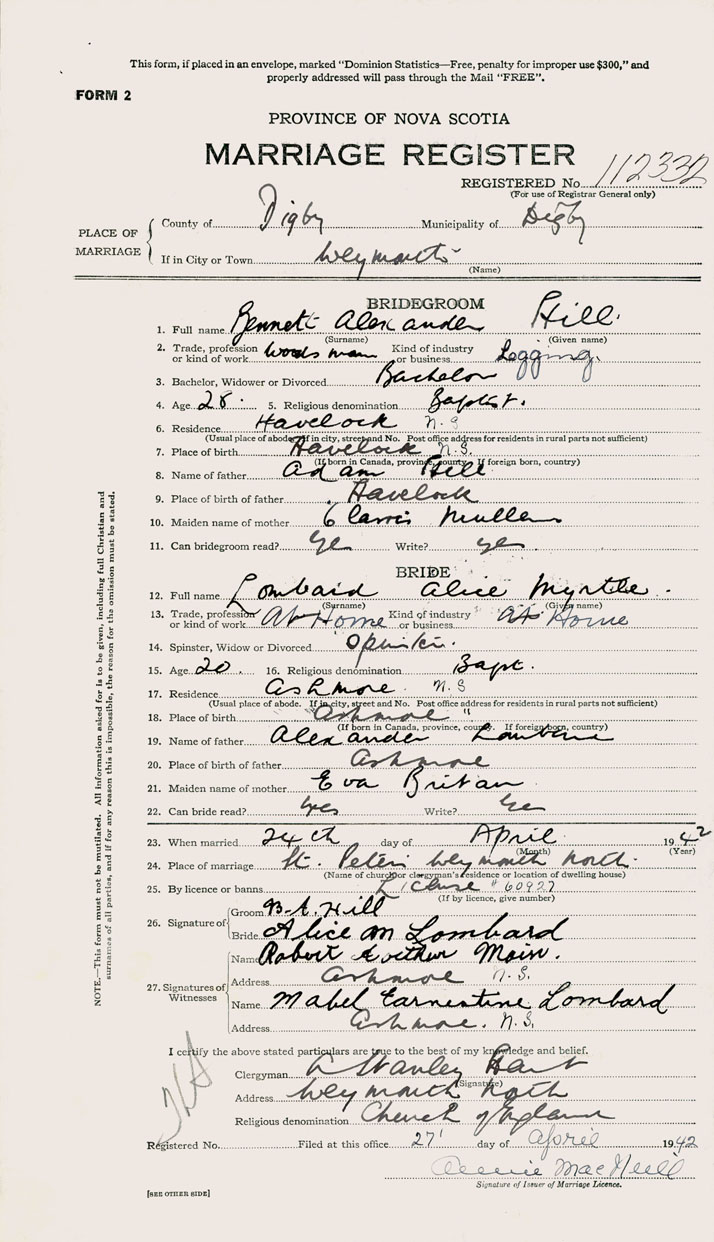 This form, if placed in an envelope, marked "Dominion Statistics—Free, penalty for improper use $300," and
properly addressed will pass through the Mail "FREE".
FORM 2
PROVINCE OF NOVA SCOTIA
MARRIAGE REGISTER
REGISTERED No. 112332
(For use of Registrar General only)
PLACE OF MARRIAGE
County of Digby Municipality of Digby
If in City or Town Weymouth
(Name)
BRIDEGROOM
1. Full name Bennett Alexander Hill.
(Surname) (Given name)
2. Trade, profession or kind of work Woodsman Kind of industry or business Logging.
3. Bachelor, Widower or Divorced Bachelor
4. Age 28. 5. Religious denomination Baptist.
6. Residence Havelock N.S
(Usual place of abode. If in city, street and No. Post office address for residents in rural parts not sufficient)
7. Place of birth Havelock N.S.
(If born in Canada, province, county. If foreign born, country)
8. Name of father Adam Hill
9. Place of birth of father Havelock
10. Maiden name of mother Mullen
11. Can bridegroom read? Write?
BRIDE
12. Full name Lombard Alice Myrtle.
(Surname) (Given name)
13. Trade, profession or kind of work At Home Kind of industry or business At Home
14. Spinster, Widow or Divorced Spinster.
15. Age 20. 16. Religious denomination Bapt.
17. Residence Ashmore N.S
(Usual place of abode. If in city, street and No. Post office address for residents in rural parts not sufficient)
18. Place of birth Ashmore "
(If born in Canada, province, county. If foreign born, country)
19. Name of father Alexander
20. Place of birth of father Ashmore
21. Maiden name of mother Eva Britan
22. Can bride read? Yes Write? Yes
23. When married 24th day of April 1942
(Month) (Year)
24. Place of marriage St. Peters Weymouth North.
(Name of church or clergyman's residence or location of dwelling house)
25. By licence or banns License # 60927
(If by licence, give number)
26. Signature of
Groom B.A. Hill
Bride Alice M Lombard
27. Signatures of Witnesses
Name Robert Main.
Address Ashmore N.S.
Name Mabel Earnestine Lombard
Address Ashmore. N.S.
I certify the above stated particulars are true to the best of my knowledge and belief.
Clergyman A Stanley Hart
(Signature)
Address Weymouth North
Religious denomination Church of England
Registered No. Filed at this office 27 day of April 1942
Annie MacNeill
Signature of Issuer of Marriage Licence.
[SEE OTHER SIDE]
NOTE.—This form must not be mutilated. All information asked for is to be given, including full Christian and
surnames of all parties, and if for any reason this is impossible, the reason for the omission must be stated.